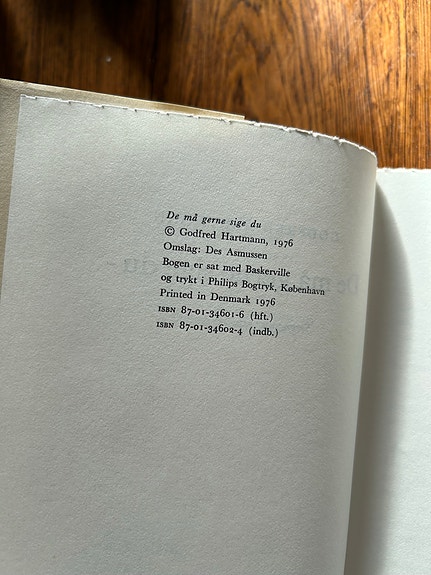 De må gerne sige du
© Godfred Hartmann, 1976
Omslag: Des Asmussen
Bogen er sat med Baskerville
og trykt i Philips Bogtryk, København
Printed in Denmark 1976
ISBN 87-01-34601-6 (hft.)
ISBN 87-01-34602-4 (indb.)